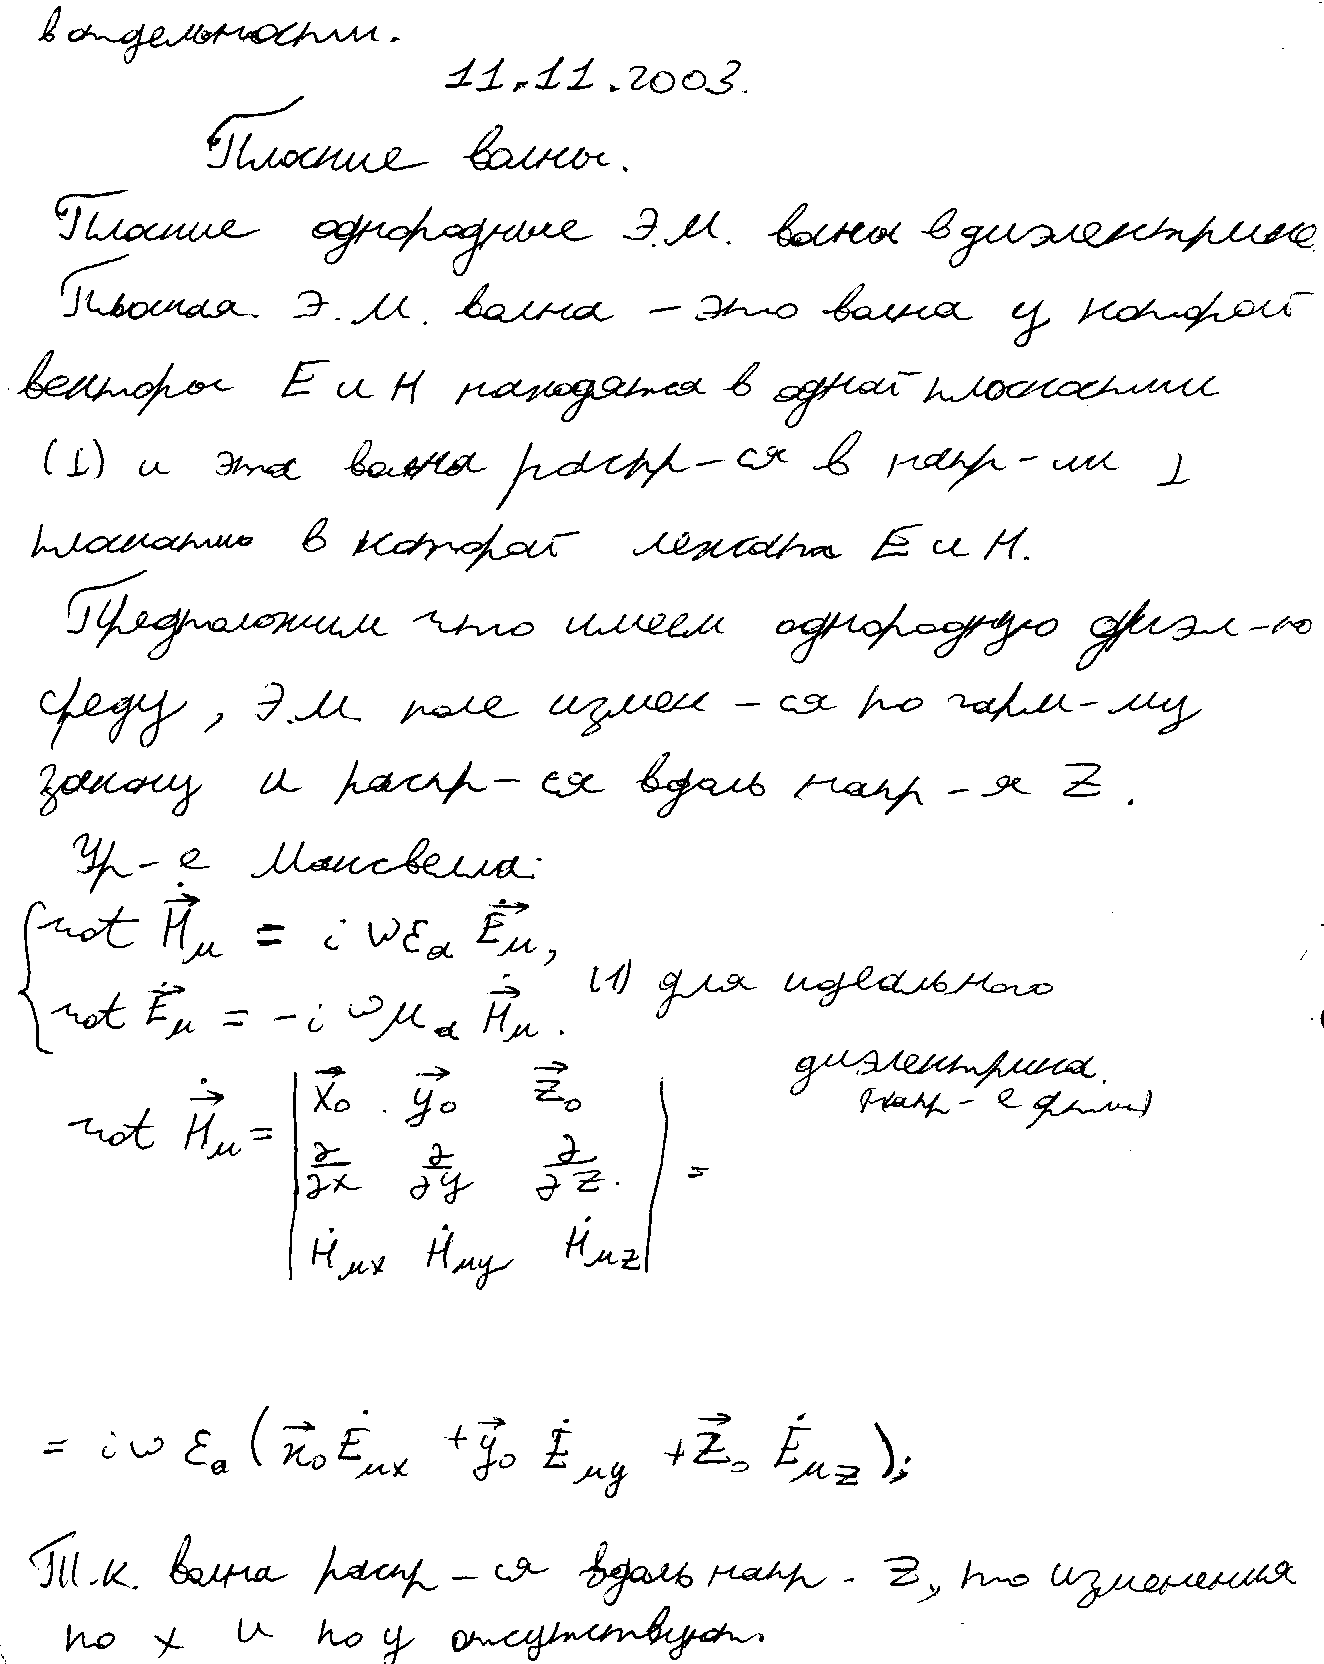 в отдельности.
11.11.2003.
Плоские волны.
Плоские однородные Э.М. волны в диэлектрике
Плоская Э.М. волна – это волна у которой
векторы E и H находятся в одной плоскости
(1) и эта волна распр-ся в напр-ии ⊥
плоскости в которой лежат E и H.
Предположим что имеем однородную диэл-ю
среду, Э.М. поле измен-ся по гарм-му
закону и распр-ся вдоль напр-я Z.
Ур-е Максвелла:
rot \vec{\dot{H}}_м = iωε_a \vec{\dot{E}}_м,
rot \vec{\dot{E}}_м = -iωμ_a \vec{\dot{H}}_м. (1) для идеального
диэлектрика.
rot \vec{\dot{H}}_м = | \vec{x}_0 \vec{y}_0 \vec{z}_0
∂/∂x ∂/∂y ∂/∂z
\dot{H}_{мx} \dot{H}_{мy} \dot{H}_{мz} | =
= iωε_a (\vec{x}_0 \dot{E}_{мx} + \vec{y}_0 \dot{E}_{мy} + \vec{z}_0 \dot{E}_{мz});
Т.к. волна распр-ся вдоль напр. Z, то изменения
по x и по y отсутствуют.